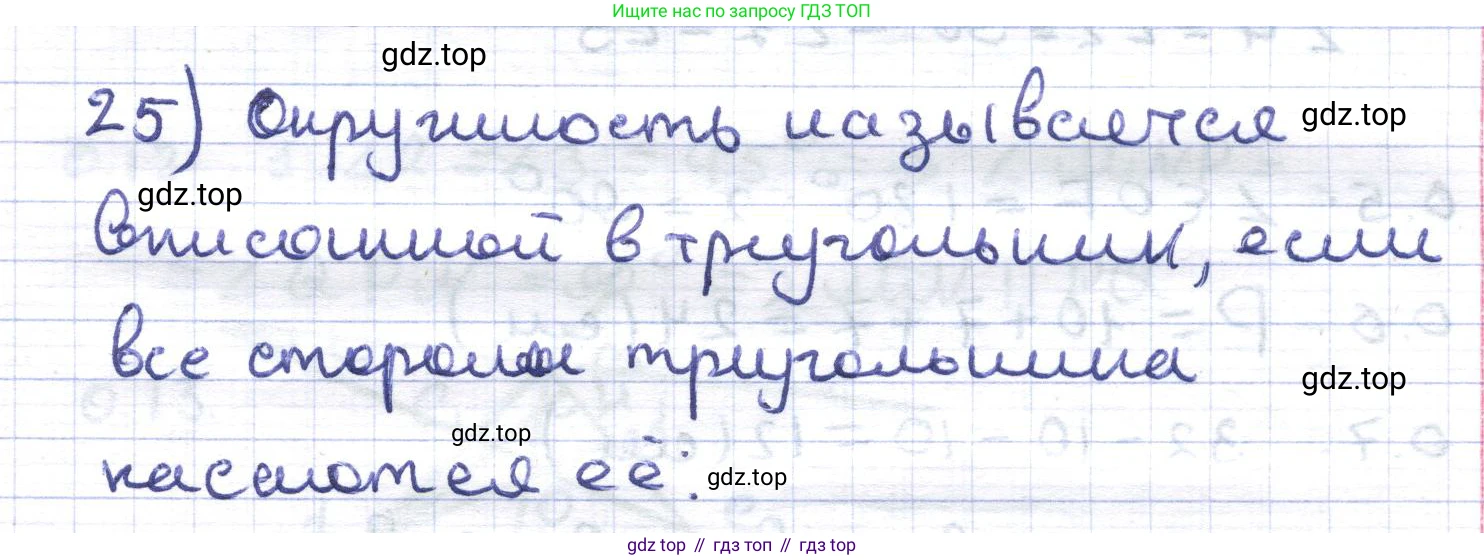 Ищите нас по запросу ГДЗ ТОП
gdz.top
25) Окружность называется gdz.top
gdz.top
вписанной в треугольник, если
все стороны треугольника
gdz.top
gdz.top
касаются её. gdz.top
gdz top // гдз топ // gdz top